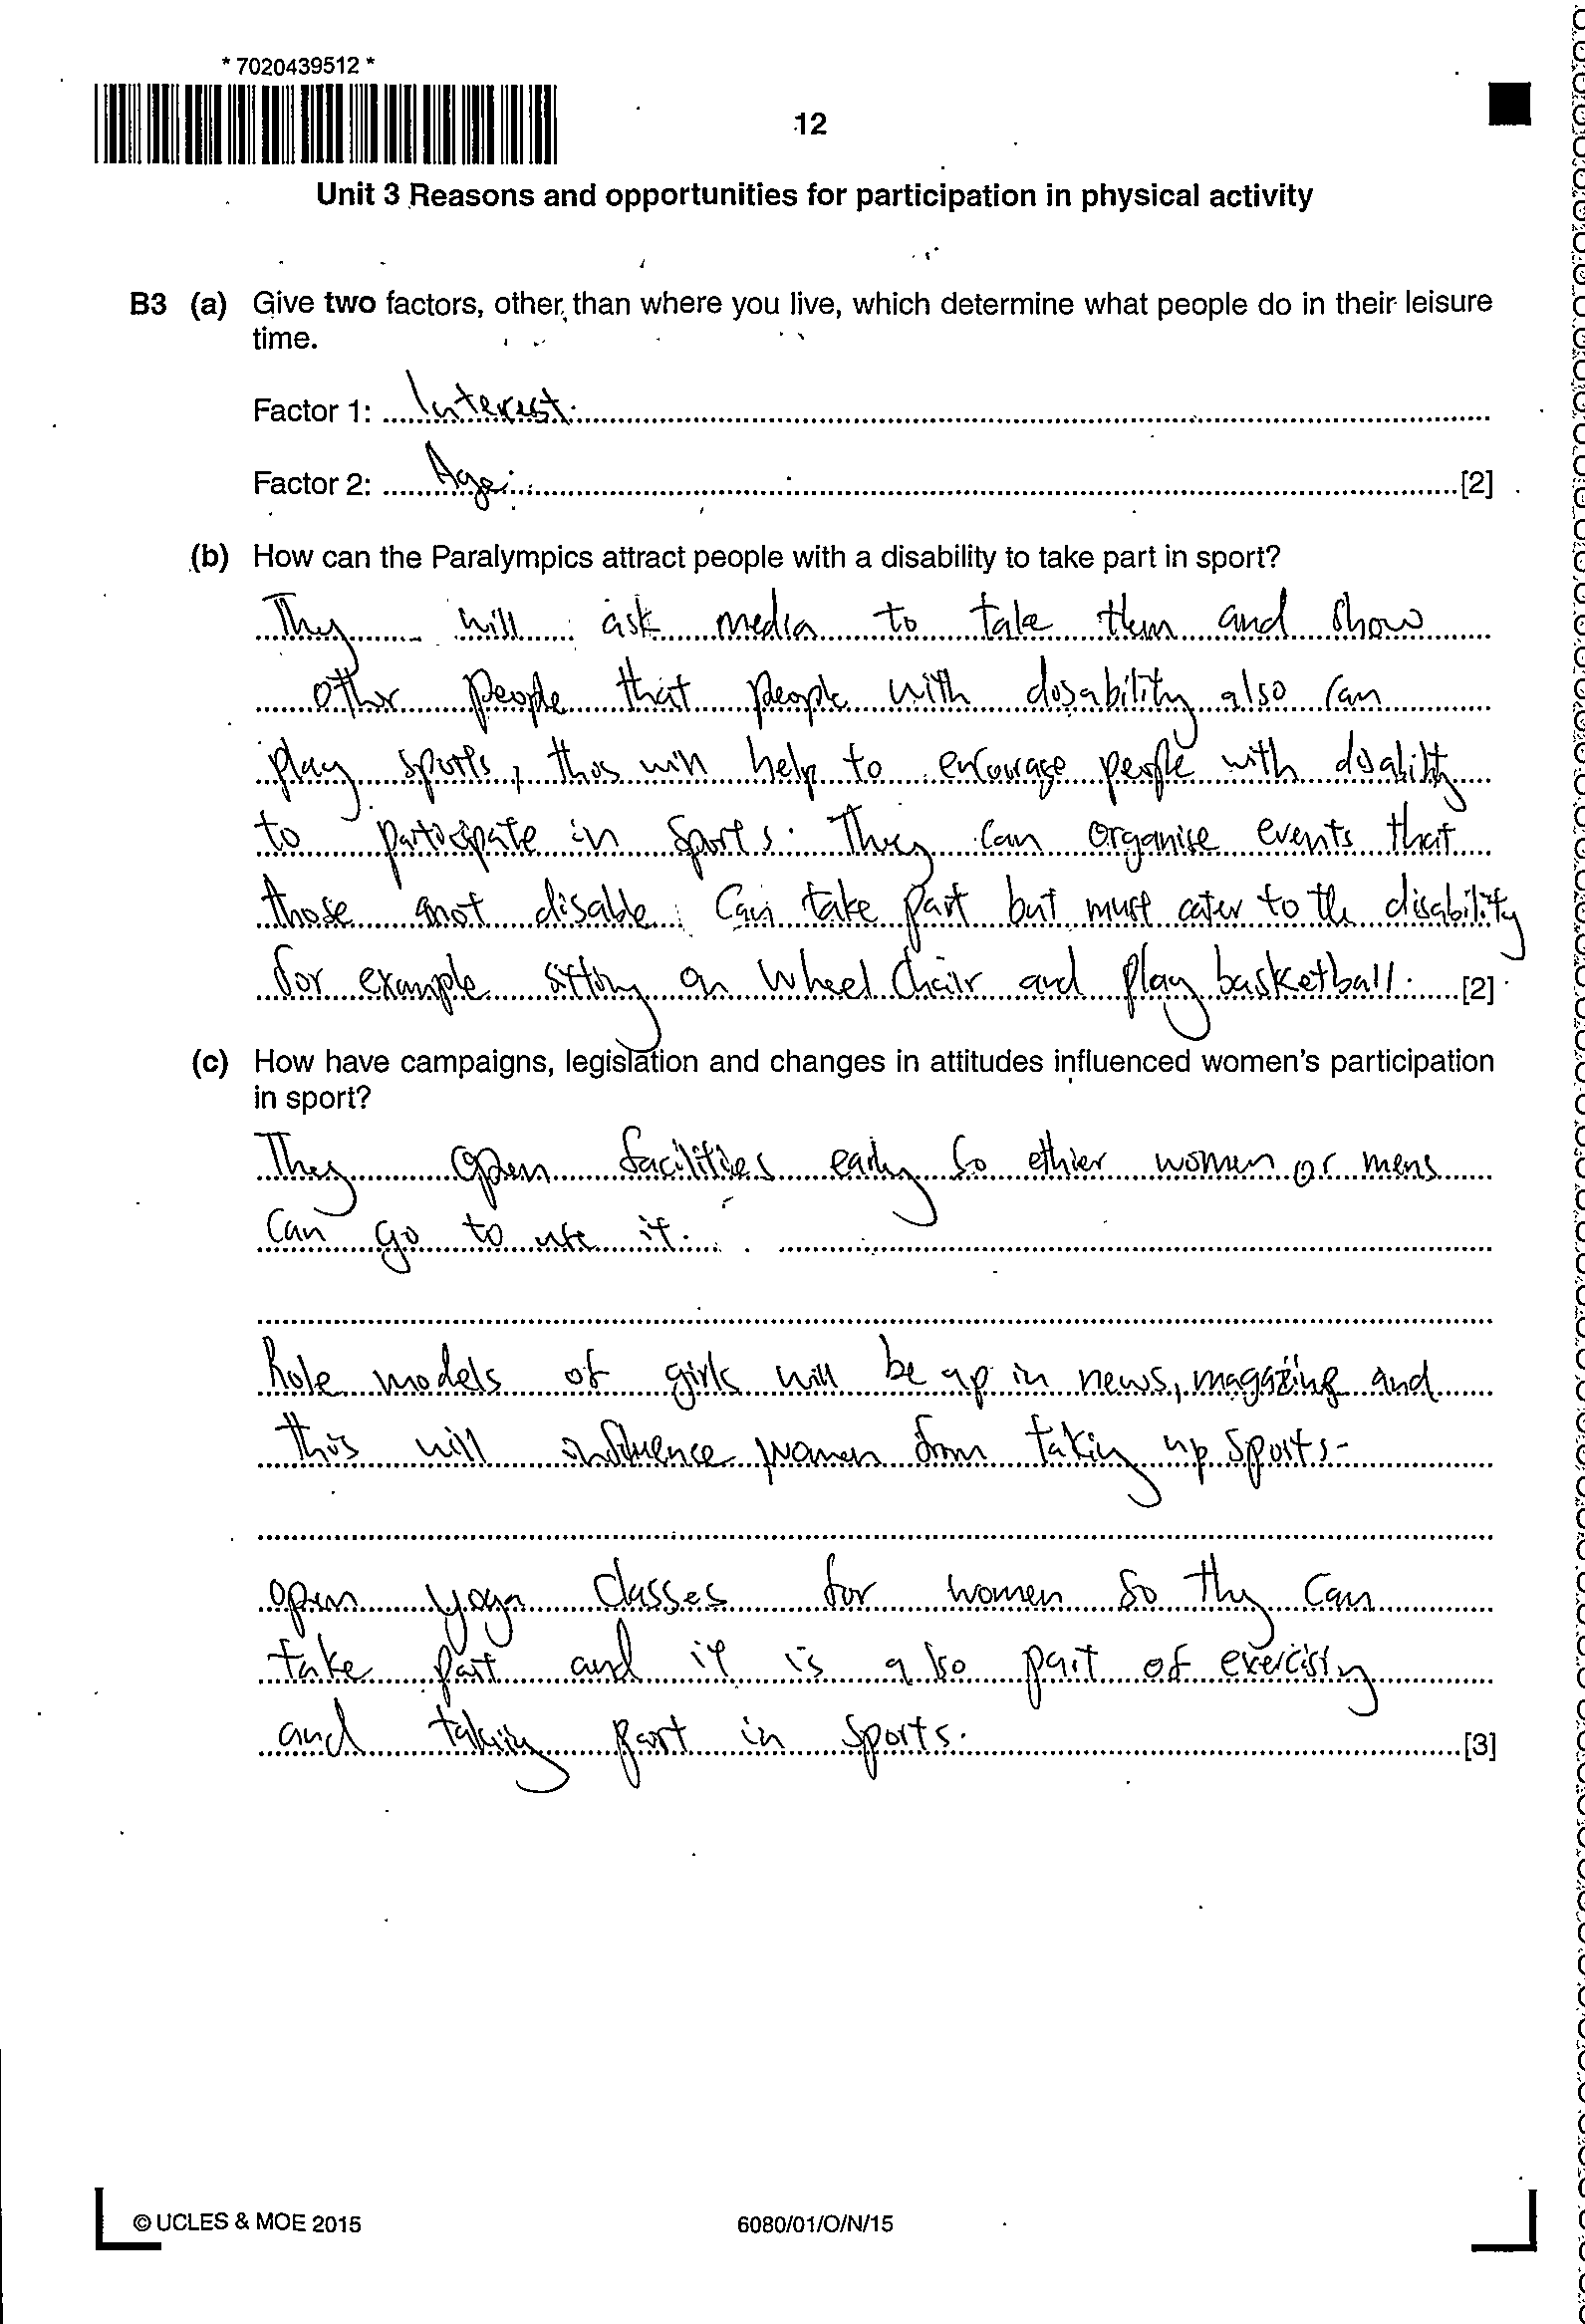 * 7020439512 *
12
Unit 3 Reasons and opportunities for participation in physical activity
B3 (a) Give two factors, other than where you live, which determine what people do in their leisure
time.
Factor 1: Interest.
Factor 2: Age. [2]
(b) How can the Paralympics attract people with a disability to take part in sport?
They will ask media to take them and show
other people that people with disability also can
play sports, this will help to encourage people with disality
to participate in sports. They can organise events that
those not disable can take part but must cater to the disability
for example sitting on wheel chair and play basketball. [2]
(c) How have campaigns, legislation and changes in attitudes influenced women's participation
in sport?
They open facilities early so ethier women or mens
can go to use it.
Role models of girls will be up in news, magazing and
this will influence women from taking up sports.
open yoga classes for women so they can
take part and it is also part of exercising
and taking part in sports. [3]
© UCLES & MOE 2015
6080/01/O/N/15